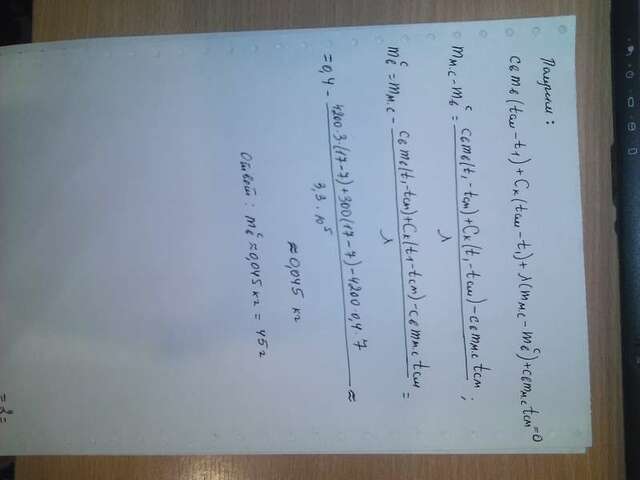 Получим:
cвmв(tсм-t₁)+Cк(tсм-t₁)+λ(mм.с-mвᶜ)+cвmм.с tсм=0
mм.с-mвᶜ = cвmв(t₁-tсм)+Cк(t₁-tсм)-cвmм.с tсм / λ ;
mвᶜ = mм.с - cвmв(t₁-tсм)+Cк(t₁-tсм)-cвmм.с tсм / λ =
= 0,4 - 4200·3·(17-7)+300(17-7)-4200·0,4·7 / 3,3·10⁵ ≈
≈ 0,045 кг
Ответ: mвᶜ ≈ 0,045 кг = 45 г